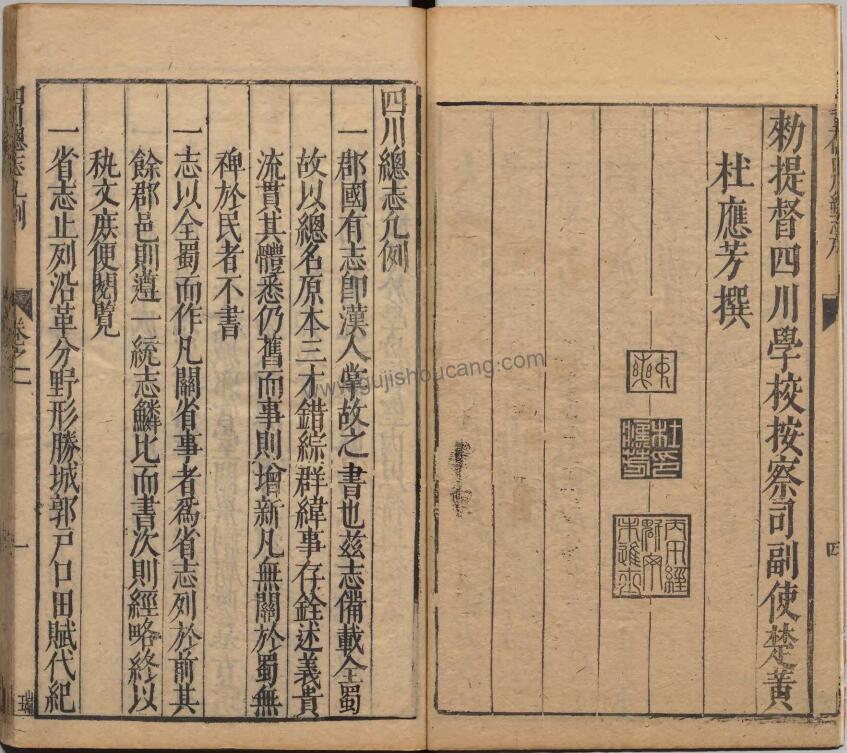 勑提督四川學校按察司副使楚黃
杜應芳撰
四川總志凡例
一郡國有志卽漢人掌故之書也兹志備載全蜀
故以總名原本三才錯綜群緯事存銓述義貴
流貫其體悉仍舊而事則增新凡無關於蜀無
裨於民者不書
一志以全蜀而作凡關省事者爲省志列於前其
餘郡邑則遵一統志鱗比而書次則經略終以
秇文庶便閱覽
一省志止列沿革分野形勝城郭戶口田賦代紀
四川總志凡例
一
四
www.gujishoucang.com